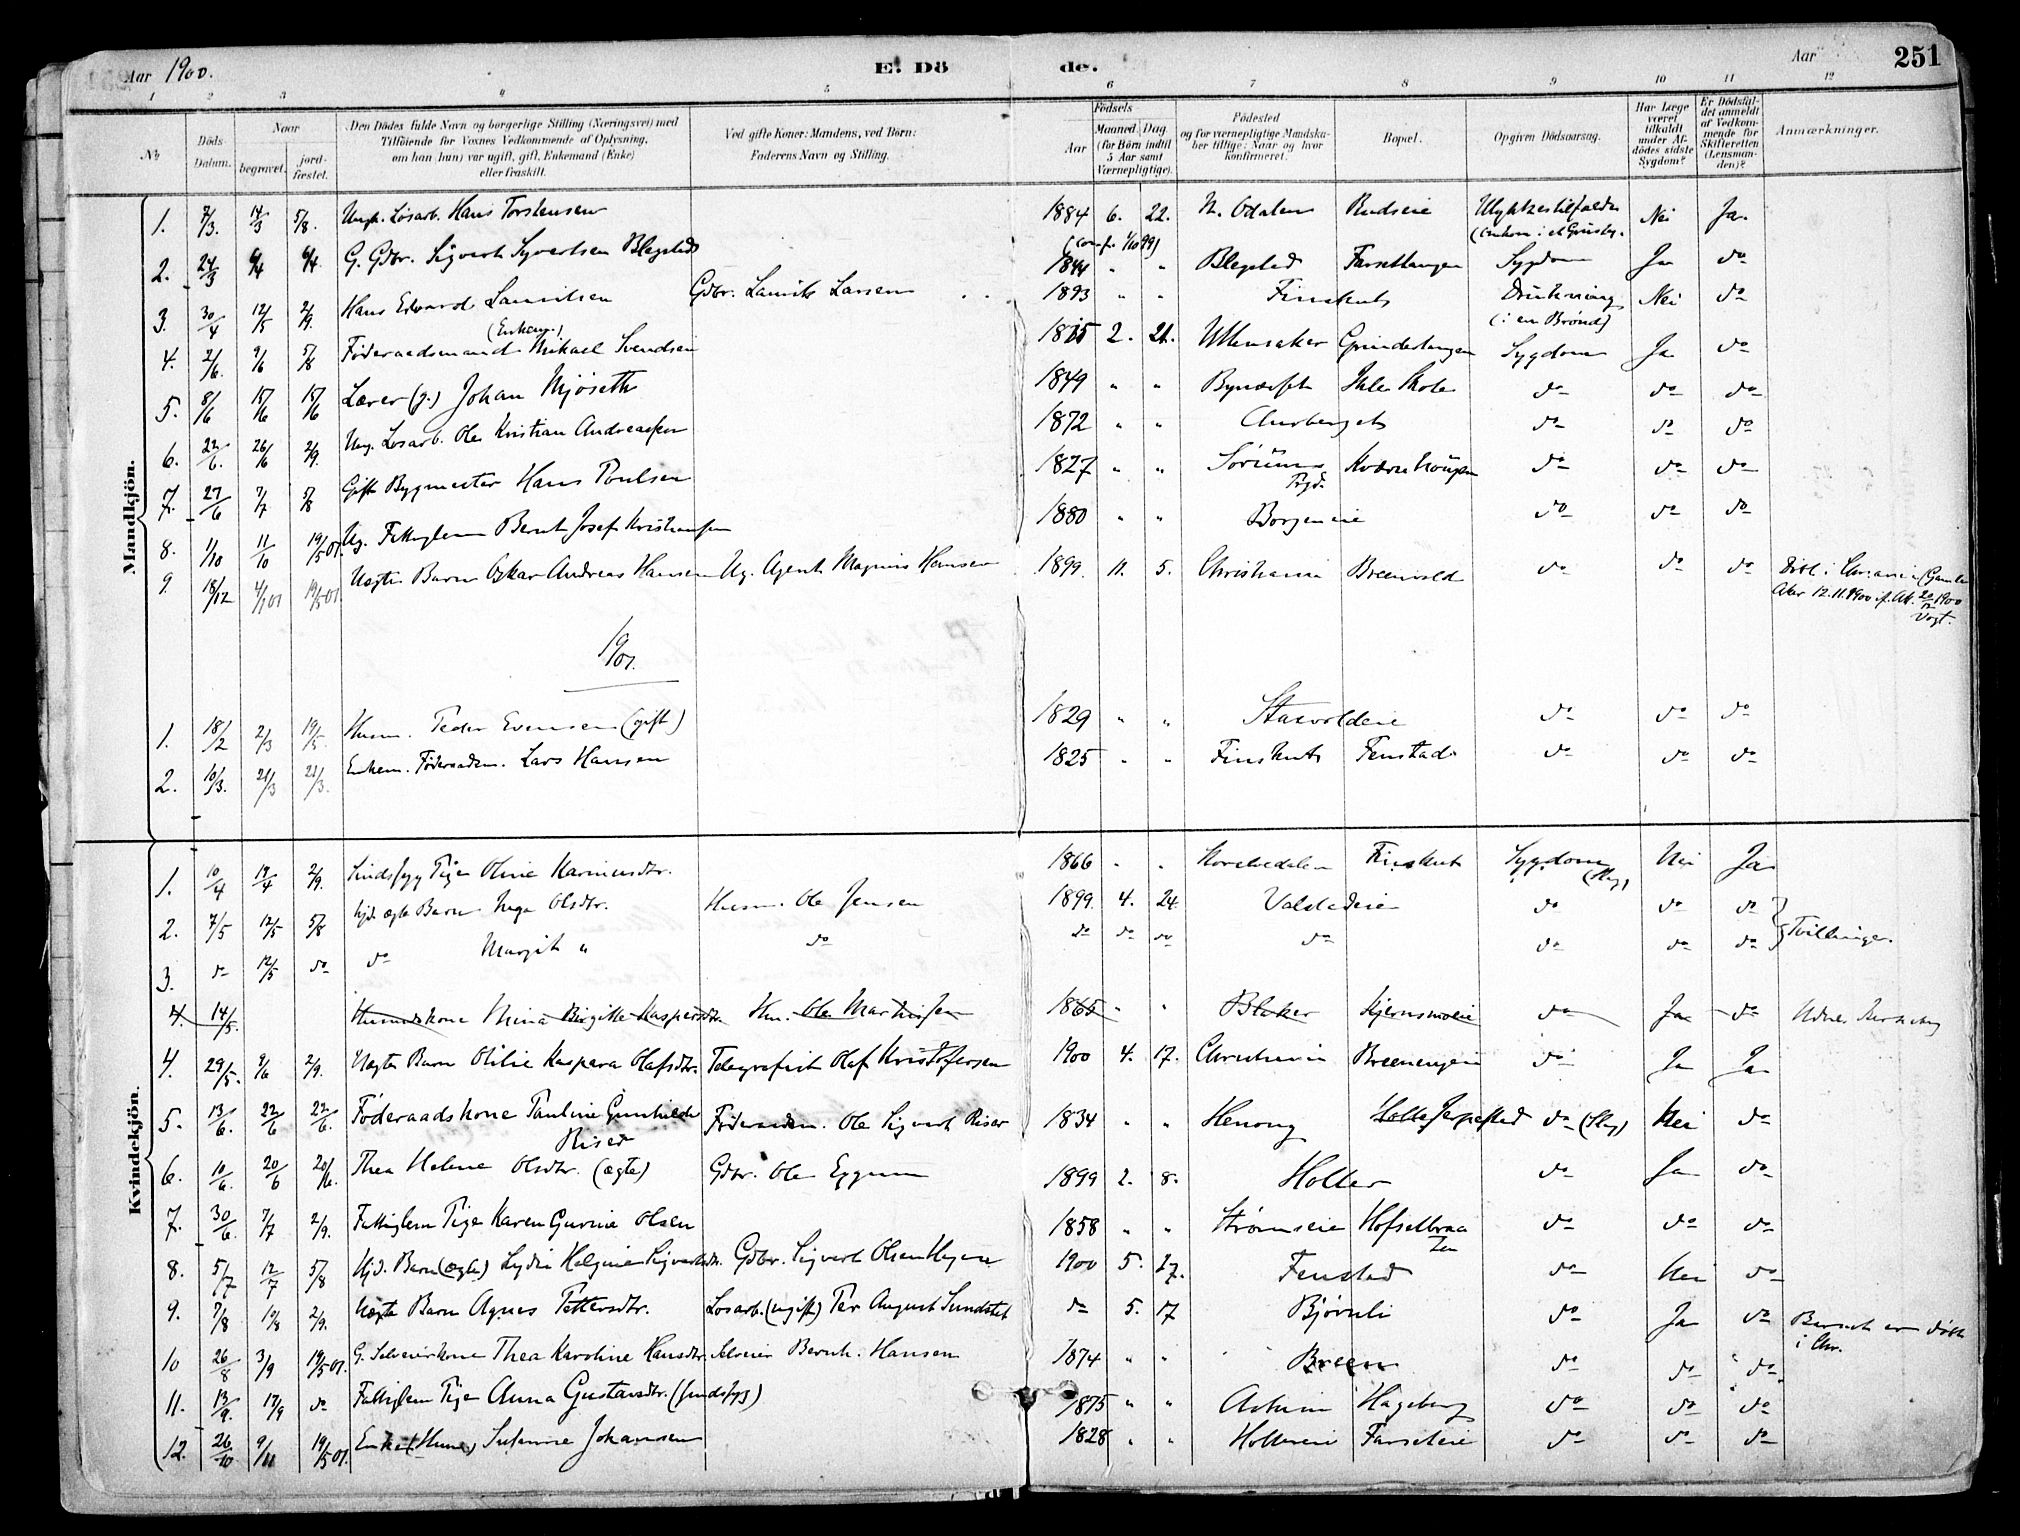 Aar 1900. E. Dö de. Aar 251
1 2 3 4 5 6 7 8 9 10 11 12
No. Döds-Datum. Naar begravet. jordfæstet. Den Dödes fulde Navn og borgerlige Stilling (Næringsvei) med Tilföiende for Voxnes Vedkommende af Oplysning, om han (hun) var ugift, gift, Enkemand (Enke) eller fraskilt. Ved gifte Koner: Mandens, ved Börn: Faderens Navn og Stilling. Födsels Aar Maaned. Dag. (for Börn indtil 5 Aar samt Værnepligtige). Födested og for værnepligtige Mandskaber tillige: Naar og hvor konfirmeret. Bopæl. Opgiven Dödsaarsag. Har Læge været tilkaldt under Afdödes sidste Sygdom? Er Dödsfaldet anmeldt af Vedkommende for Skifteretten (Lensmanden)? Anmærkninger.
Mandkjön.
1. 7/3. 14/3 5/8. Ungk. Løsarb. Hans Torstensen 1884 6. 22. N. Odalen Rudseie Ulykkestilfælde Nei Ja.
2. 24/3 6/4 6/4. G. Gdbr. Sigvert Syvertsen Blegstad 1844 " " Blegstad Farsettangen Sygdom Ja do
3. 30/4 12/5 2/9. Hans Edvard Lauritsen Gdbr. Laurits Larsen 1893 " " Finskut Drukning (i en Brønd) Nei do
4. 2/6. 9/6 5/8 Føderaadsmand (Enkem.) Mikael Svendsen 1815 2. 21. Ullensaker Grinderlangen Sygdom Ja do
5. 8/6 15/6 15/6 Lærer (g.) Johan Mjøseth 1849 " " Bynæsset Ihle Skole do do do
6. 22/6. 26/6 2/9. Ung. Løsarb. Ole Kristian Andreassen 1872 " " Aurberget do do do
7. 27/6 7/7 5/8 Gift Bygmester Hans Poulsen 1827 " " Sørum Prgd. Kværnhougen do do do
8. 1/10 11/10 19/5 01. Ug. Fattiglem Bernt Josef Kristiansen 1880 " " Borgeneie do do do
9. 18/12 4/1 01 19/5 01. Uægte Barn Oskar Andreas Hansen Ug. Agent Magnus Hansen 1899. 11. 5. Christiania Breenvold do do do Døbt i Chr.ania (Gamle Aker 12.11.1900 if. Att. 20/12 1900 Vogt.
1901.
1. 18/2 2/3 19/5. Husm. Peder Evensen (gift) 1829 " " Stasvoldeie do do do
2. 10/3. 21/3 21/3. Enkem. Føderaadsm. Lars Hansen 1825 " " Finskut Fenstad do do do
Kvindekjön.
1. 10/4 19/4 2/9. Sindssyg Pige Oline Karinusdtr. 1866 " " Finskut Sygdom Nei Ja
2. 7/5 12/5 5/8 Hjd. ægte Barn Inga Olsdtr. Husm. Ole Jensen 1899. 4. 24. Valstadeie do do do
3. do 12/5 do do Margit " do do do do do do do do Tvillinger.
4. 14/5. Husmandskone Mina Birgitte Kaspersdtr. Hm. Ole Martinsen 1865 " " Blaker Kjernsmoeie do Ja do
4. 29/5. 9/6 2/9. Uægte Barn Otilie Kaspara Olafsdtr. Telegrafist Olaf Kristofersen 1900 4. 17. Christiania Breenengen do Ja Ja
5. 13/6. 22/6 22/6. Føderaadskone Pauline Gunhilde Riser Føderaadsm. Ole Sigvert Riser 1834 " " Henong Jerpestad do Nei do
6. 10/6. 20/6 20/6. Thea Helene Olsdtr. (ægte) Gdbr. Ole Eggum 1899 2. 8. Holter do Ja do
7. 30/6. 7/7 2/9. Fattiglem Pige Karen Gurine Olsen 1858 " " Strømseie Hofselbraaten do do do
8. 5/7 12/7 5/8 Hjd. Barn (ægte) Lydia Helgine Sigvartsdtr. Gdbr. Sigvart Olsen Hagen 1900 5. 27. Fenstad do Nei do
9. 7/8 19/8 2/9. Uægte Barn Agnes Pettersdtr. Løsarb. (ugift) Per August Sundstet do 5. 17 Bjørnli do Ja do Barnet er døbt i Chr.
10 26/8 3/9 19/5 01. G. Selveierkone Thea Karoline Hansdtr. Selveier Bernh. Hansen 1874 " " Breen do do do
11. 13/9. 17/9 do Fattiglem Pige Anna Gustavsdtr. (sindssyg) 1875 " " Hageberg do do do
12. 26/10 9/11 19/5 01. Enke (Husm.) Susanne Johansen 1828 " " Holtereie Farseteie do do do